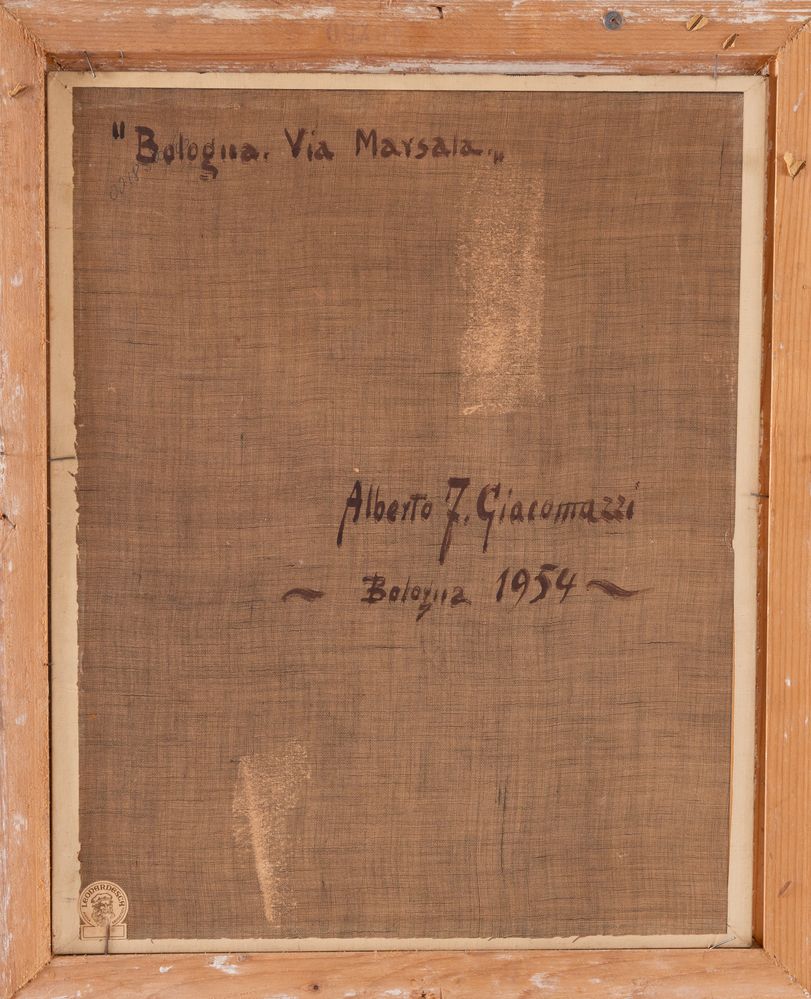 "Bologna. Via Marsala."
Alberto F. Giacomazzi
~ Bologna 1954 ~
LEONARDESCA